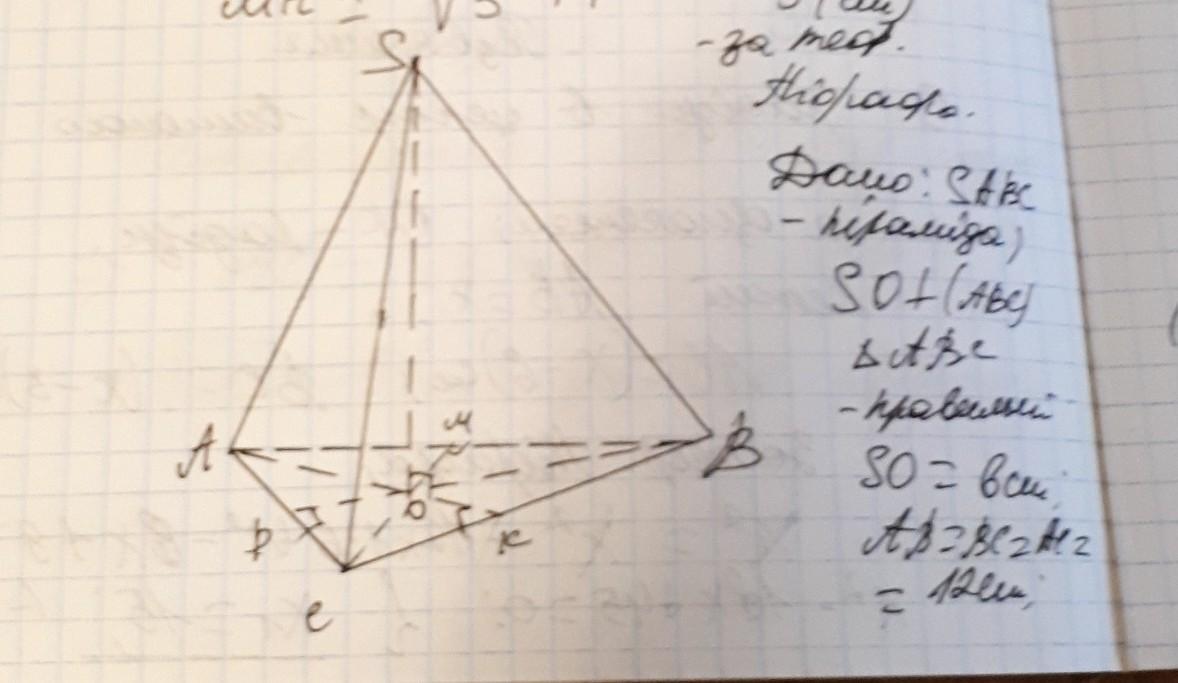 - за теор.
Піфагора.
S
Дано: SABC
- піраміда,
SO⊥(ABC)
ΔABC
- правильний
M
A
B
SO = 6см,
O
D
K
AB=BC=AC=
= 12см,
C